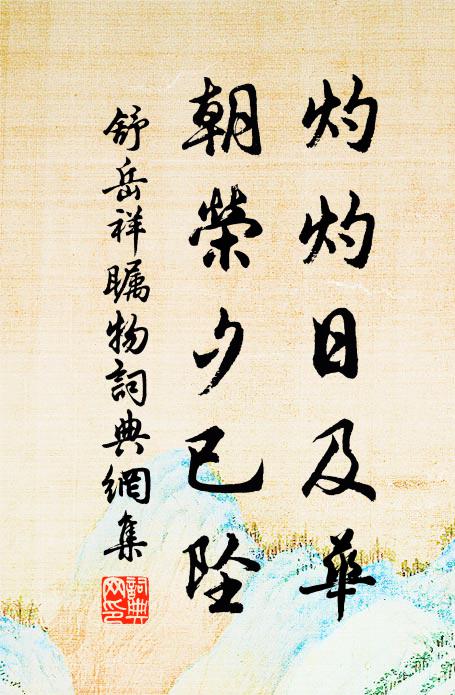 灼灼日及華
朝榮夕已墜
舒岳祥瞩物詞典網集
詞典網印